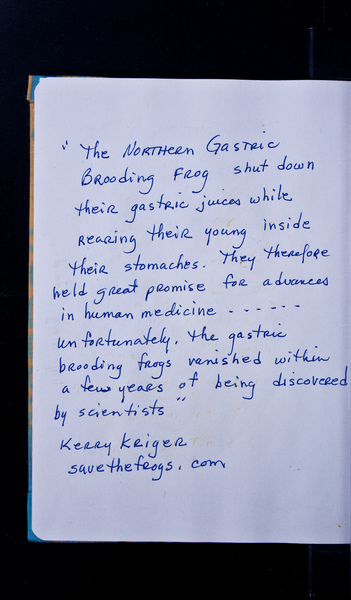 " The Northern Gastric
Brooding Frog shut down
their gastric juices while
rearing their young inside
their stomaches. They therefore
held great promise for advances
in human medicine - - - - - -
unfortunately, the gastric
brooding frogs vanished within
a few years of being discovered
by scientists "
Kerry Kriger
savethefrogs.com